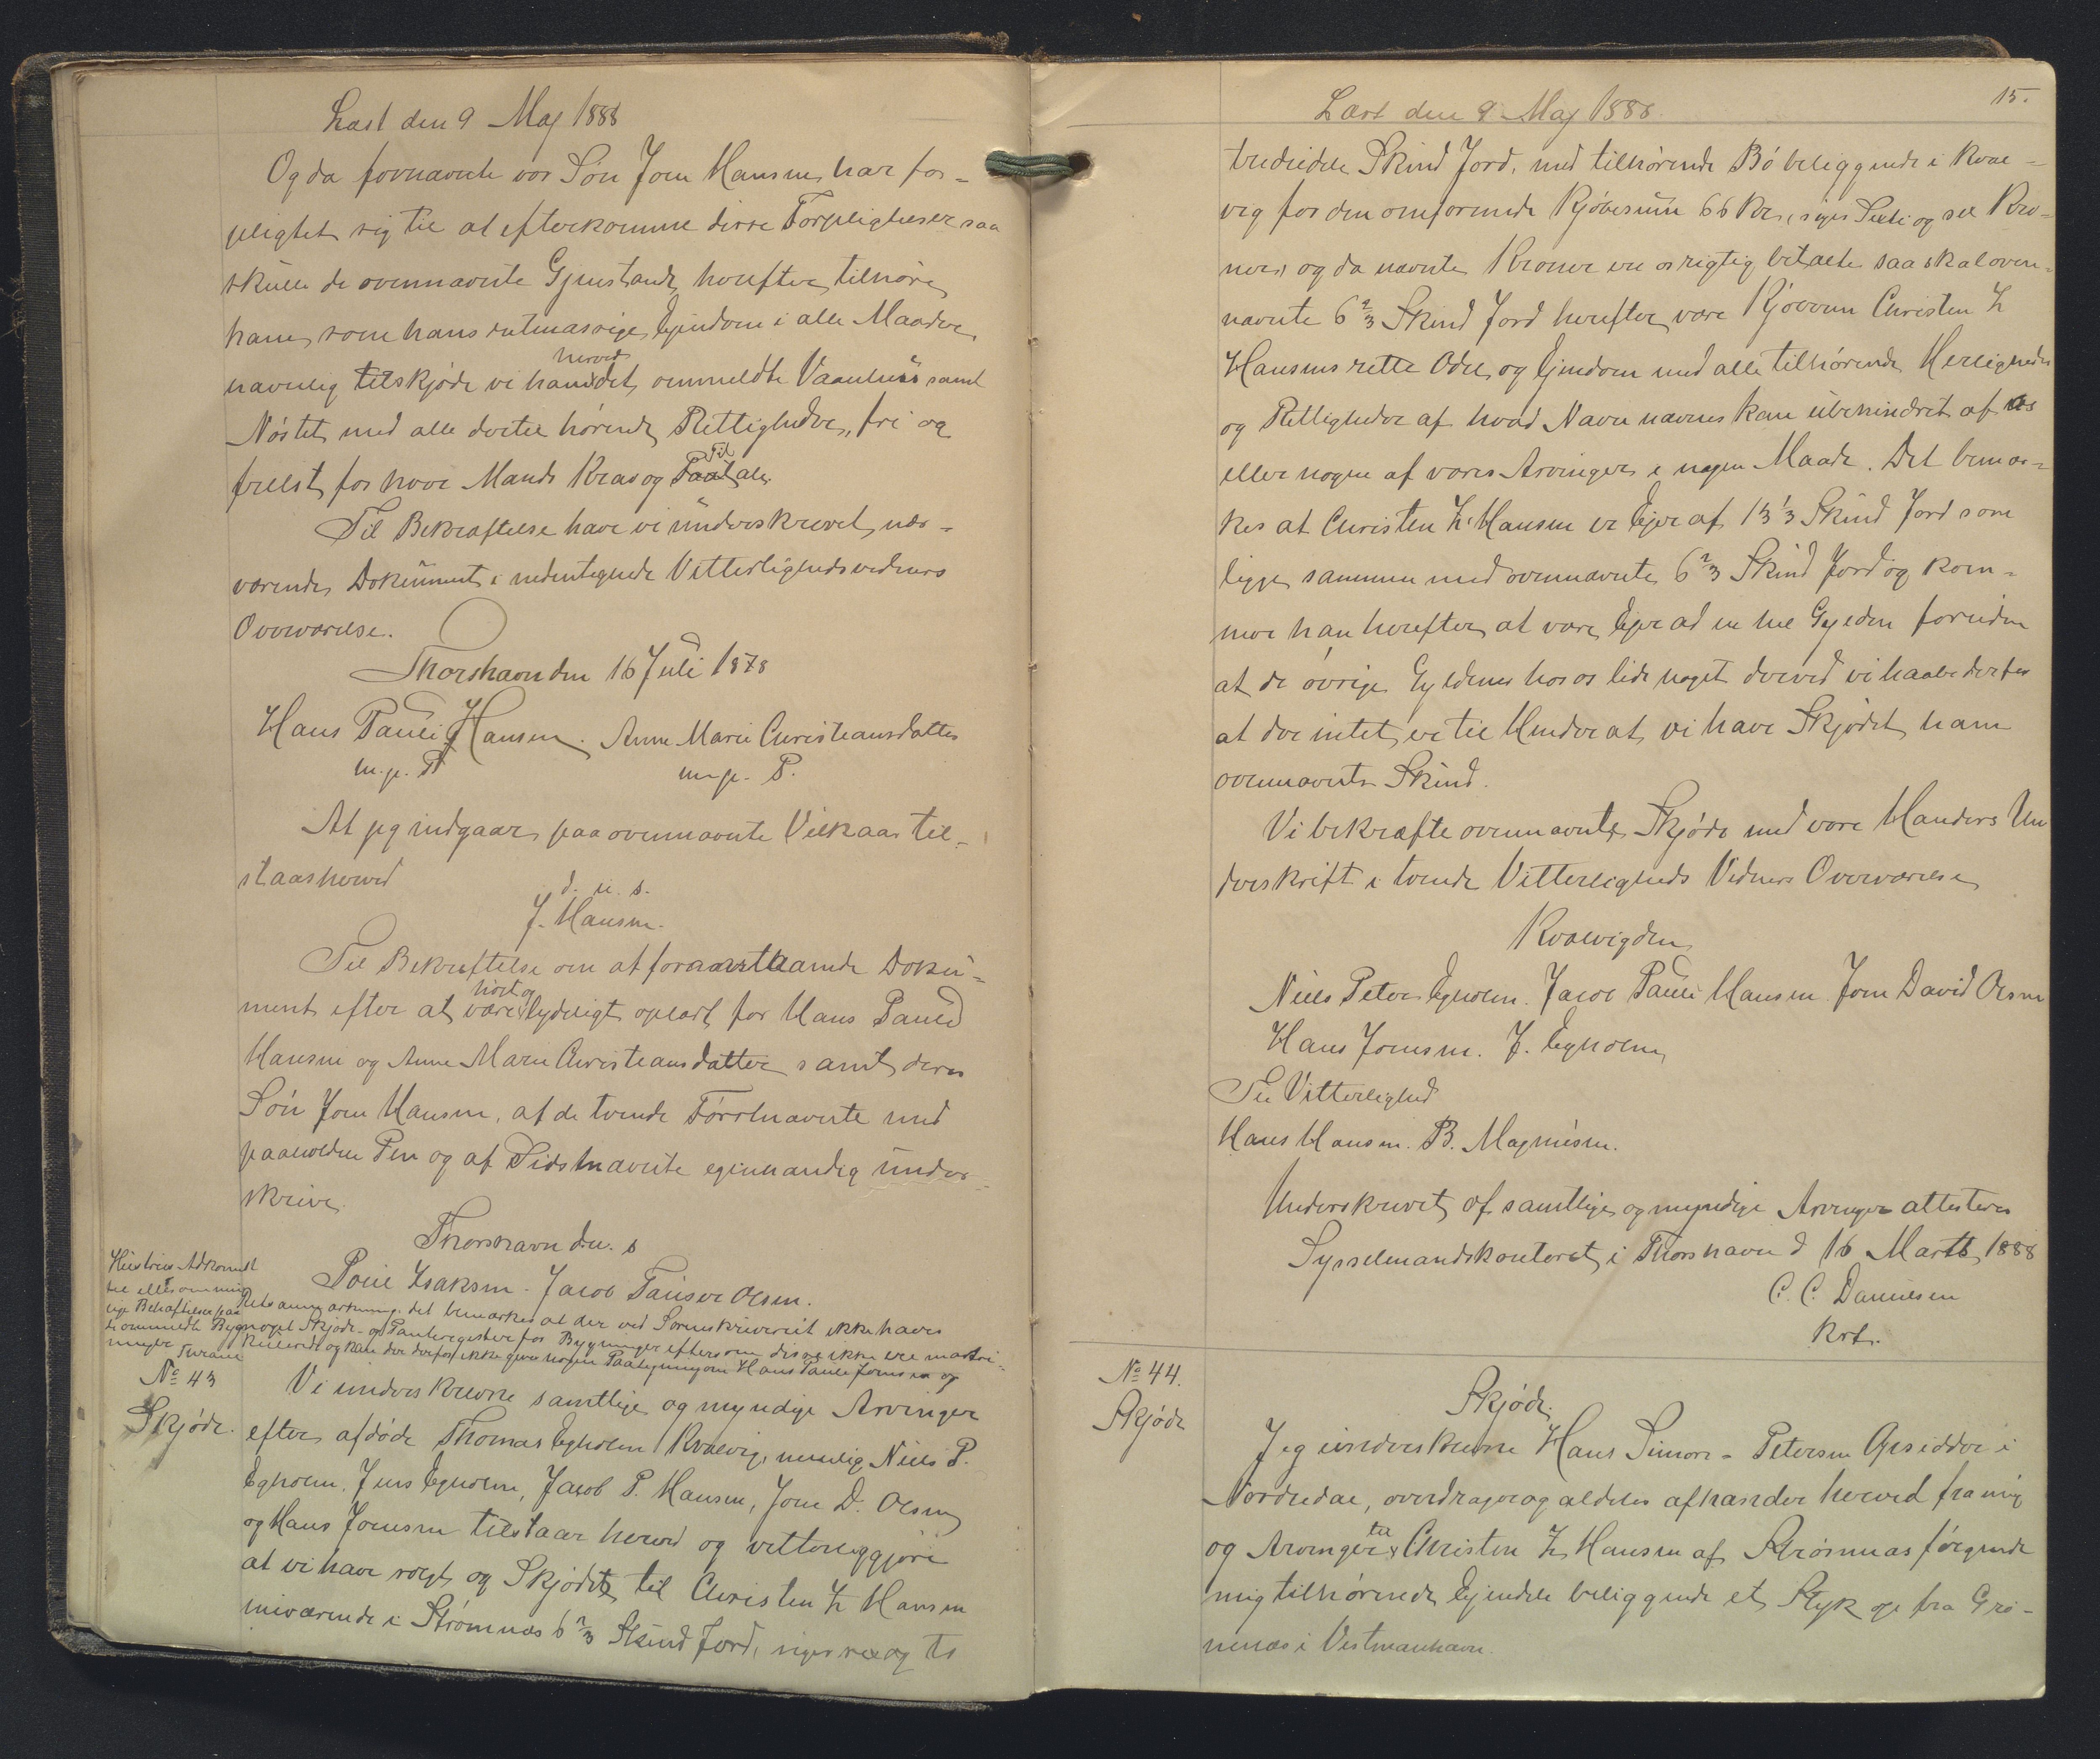 Læst den 9 Maj 1888
Og da fornævnte vor Søn Joen Hansen har for-
pligtet sig til at efterkomme disse Forpligtelser saa
skulle de ovennævnte Gjenstande herefter tilhøre
ham som hans retmæssige Ejendom i alle Maader
navnlig tilskjøde vi ham herved det ommeldte Vaanhuus samt
Nøstet med alle dertil hørende Rettigheder, fri og
frelst for hver Mands Krav og Tiltale.
Til Bekræftelse have vi underskrevet nær-
værende Dokument i nedentegnede Vitterlighedsvidners
Overværelse.
Thorshavn den 16 Juli 1878
Hans Pauli Hansen. Anne Marie Christiansdatter
m. p. P. m. p. P.
At jeg indgaar paa ovennævnte Vilkaar til-
staas herved
d. u. s.
J. Hansen.
Til Bekræftelse om at foranstaaende Doku-
ment efter at være høit og tydeligt oplæst for Hans Pauli
Hansen og Anne Marie Christiansdatter samt deres
Søn Joen Hansen, af de tvende Førstnævnte med
paaholden Pen og af Sidstnævnte egenhændig under-
skrive.
Thorshavn d. u. s
Poul Isaksen. Jacob Olsen.
Retsanmærkning. det bemærkes at der ved Sorenskriveriet ikke haves
noget Skjøde- og Panteregister for Bygninger eftersom disse ikke ere matri-
kulerede og kan der derfor ikke gives nogen Paategning om Hans Pauli Joensen og
Hustrues Adkomst
til eller om mu-
lige Behæftelser paa
de ommeldte Byg-
ninger
No 43
Skjøde.
Vi underskrevne samtlige og myndige Arvinger
efter afdøde Thomas Egholm Kvalvig, nemlig Niels P.
Egholm, Jens Egholm, Jacob P. Hansen, Joen D. Olsen
og Hans Joensen tilstaar herved og vitterliggjøre
at vi have solgt og Skjødet til Christen Z Hansen
nuværende i Strømnæs 6 2/3 Skind Jord, siger sex og to
15.
Læst den 9 Maj 1888.
trediedele Skind Jord, med tilhørende Bø beliggende i Kval-
vig for den omforenede Kjøbesum 66 Kr. siger Sexti og sex Kro-
ner, og da nævnte Kroner ere os rigtig betalte saa skal oven-
nævnte 6 2/3 Skind Jord herefter være Kjøberen Christen Z
Hansens rette Odel og Ejendom med alle tilhørende Herligheder
og Rettigheder af hvad Navn nævnes kan ubehindret af os
eller nogen af vores Arvinger i nogen Maade. Det bemær-
kes at Christen Z. Hansen er Ejer af 13 1/3 Skind Jord som
ligge sammen med ovennævnte 6 2/3 Skind Jord og kom-
mer han herefter at være Ejer ad en hel Gylden foruden
at de øvrige Gyldener hos os lide noget derved vi haabe derfor
at der intet er til Hinder at vi have Skjødet ham
ovennævnte Skind.
Vi bekræfte ovennævnte Skjøde med vore Hænders Un
derskrift i tvende Vitterligheds Vidners Overværelse
Kvalvig den
Niels Peter Egholm. Jacob Pauli Hansen. Joen David Olsen
Hans Joensen. J. Egholm
Til Vitterlighed
Hans Hansen. B. Magnusen.
Underskrevet af samtlige og myndige Arvinger attesteres
Sysselmandskontoret i Thorshavn d 16 Marts 1888
C. C. Danielsen
Kst.
No 44.
Skjøde
Skjøde.
Jeg underskrevne Hans Simon-Petersen Opsidder i
Nordredal, overdrager og aldeles afhænder herved fra mig
og Arvinger til Christen Z Hansen af Strømnæs følgende
mig tilhørende Ejendele beliggende et Styk op fra Grø-
nenæs i Vestmanhavn.